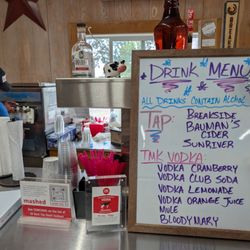 DRINK MENU
* ALL DRINKS CONTAIN ALCOHOL
TAP: BREAKSIDE
BAUMAN'S
CIDER
SUNRIVER
TMK VODKA:
VODKA CRANBERRY
VODKA CLUB SODA
VODKA LEMONADE
VODKA ORANGE JUICE
MULE
BLOODY MARY
mashed